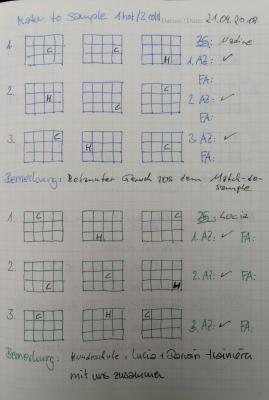 Match to sample 1 hot/2 cold Datum/Date: 21.04.2018
1. C C ZS: Nadine
H 1. AZ: ✓
FA:
2. H L C 2. AZ: ✓
FA:
3. L H C 3. AZ: ✓
FA:
Bemerkung: Bekannter Geruch aus dem Match-to-
sample
1. C H C ZS: Lucia
1. AZ: ✓ FA:
2. L C H 2. AZ: ✓ FA:
3. C H L 3. AZ: ✓ FA:
Bemerkung: Hundeschule, Lucia + trainieren
mit uns zusammen